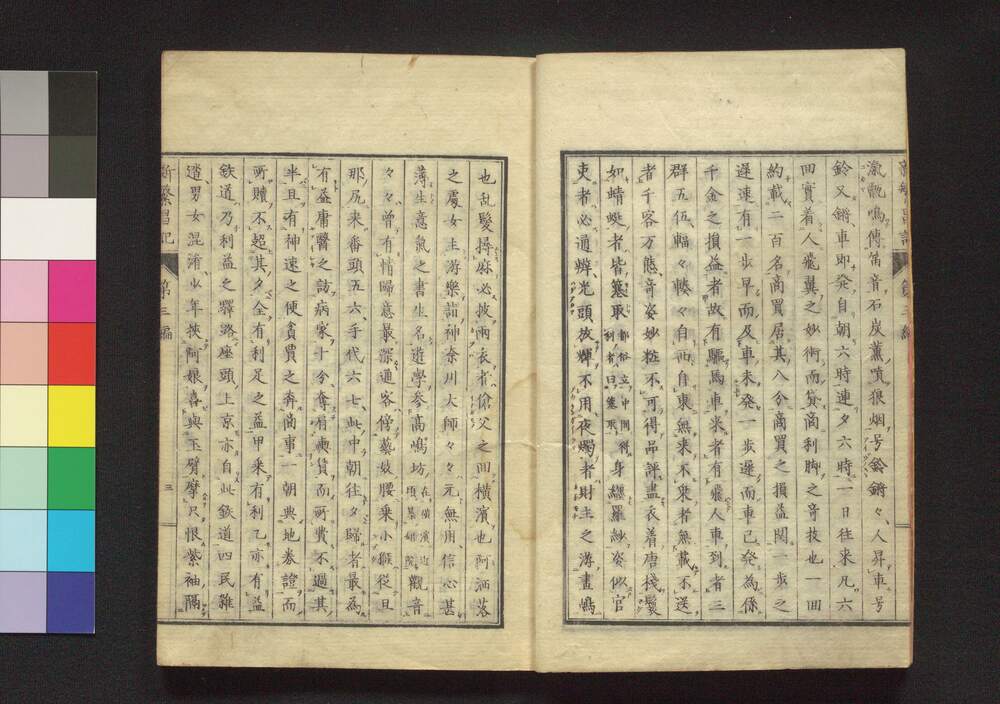 瀛觀鳴傳笛音石炭薫噴狼烟号鈴鏘々、人昇車号
鈴又鏘車即発自朝六時連夕六時一日往来凡六
回實着人飛翼之妙術而貨商利脚之奇技也一回
約載二百名商買居其八分商買之損益関一歩之
遅速有一歩早而及車未発一歩遅而車已発為係
千金之損益者故有驅馬車来者有飛人車到者三
群五伍輻々輳々自西自東無来不乗者無載不送
者千客万態音姿妙粧不可得品評盡衣着唐棧髪
如蜻蜓者皆篡取都俗立中間得利者曰篡取身纒羅紗姿似官
吏者必通辨光頭放輝不用夜燭者財主之溥晝鳴
也乱髪擣麻必披兩衣者傖父之回横濱也阿洒落
之處女主游樂詣神奈川大師々々元無用信心甚
薄生意氣之書生名遊學参高嶋坊在横濱近頃暴娼院觀音
々々曾有情歸意最深通客傍藝妓腰乗小猴從旦
那尻来番頭五六手代六七此中朝往夕歸者最為
有益庸醫之訪病家十分奪有夷貨而所費不過其
半且有神速之便貪買之奔商事一朝典地券證而
所贖不起其夕全有利足之益甲乗有利乙亦有益
鉄道乃利益之驛路座頭上京亦自此鉄道四民雜
遝男女混淆少年挾阿娘喜與玉臂摩尺恨紫袖隔
新繁昌記 第三編
三